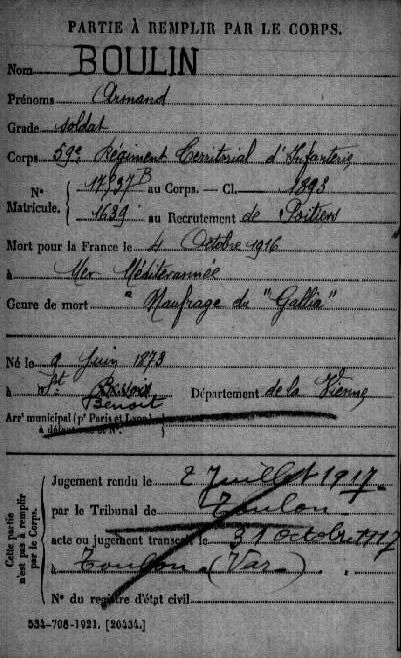 PARTIE À REMPLIR PAR LE CORPS.
Nom BOULIN
Prénoms Armand
Grade soldat
Corps 59e Régiment Territorial d'Infanterie
N° Matricule. 17537B au Corps. — Cl. 1893
1639 au Recrutement de Poitiers
Mort pour la France le 4 Octobre 1916
à Mer Méditerannée
Genre de mort "Naufrage du "Gallia"
Né le 9 Juin 1873
à St Benoit Département de la Vienne
Arrt municipal (pr Paris et Lyon),
à défaut rue et N°.
Cette partie n'est pas à remplir par le Corps.
Jugement rendu le 2 Juillet 1917
par le Tribunal de Toulon
acte ou jugement transcrit le 31 octobre 1917
à Toulon (Var)
N° du registre d'état civil
534-708-1921. [20434.]